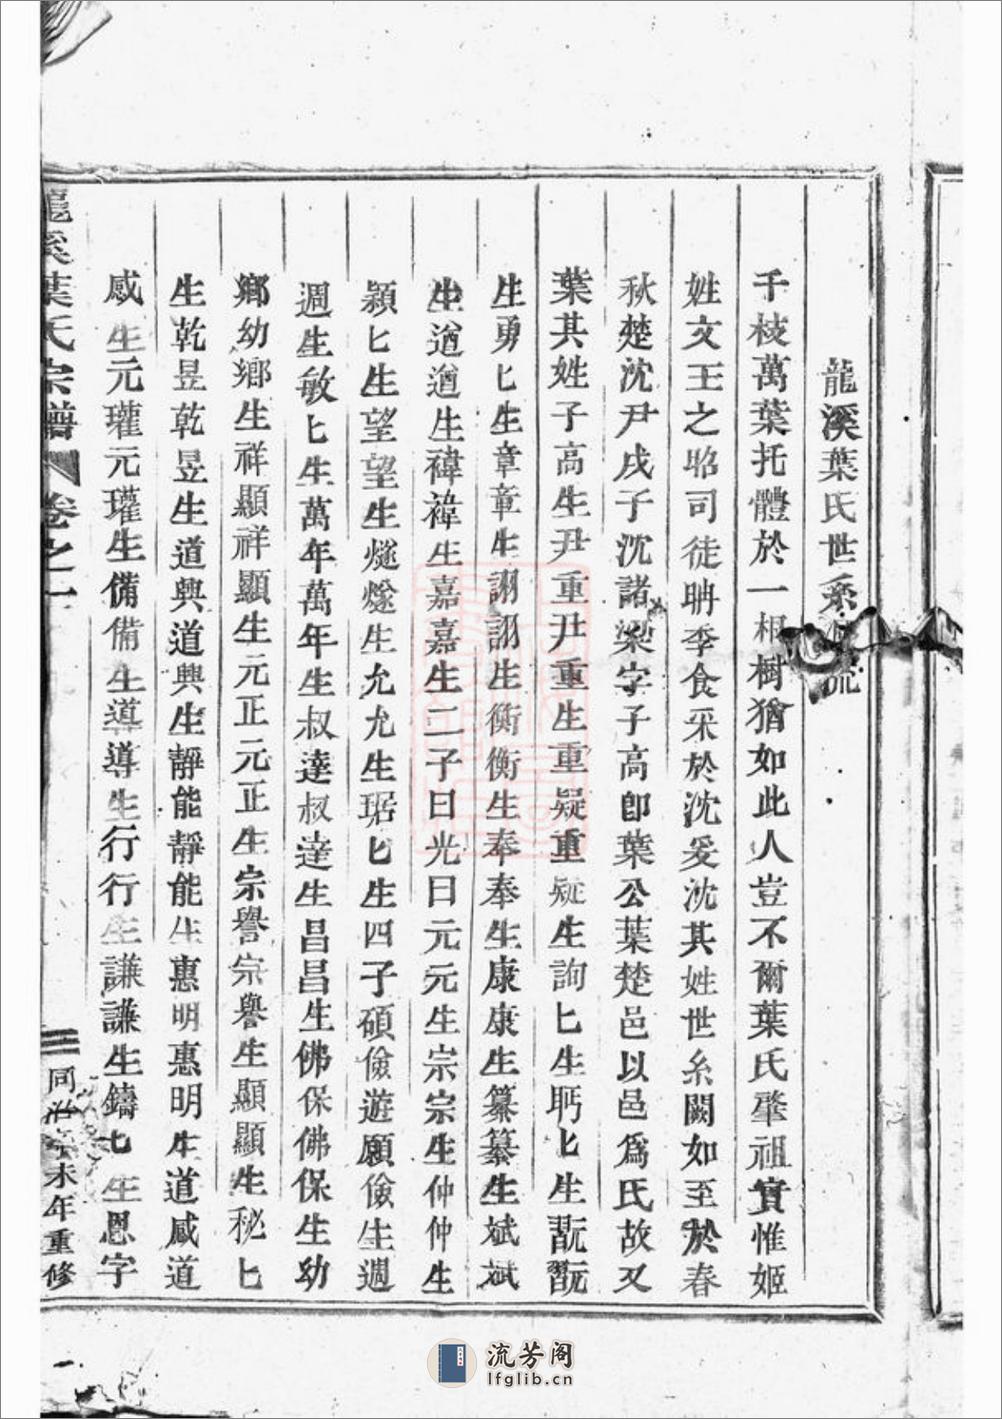 龍溪葉氏世系
千枝萬葉托體於一根樹猶如此人豈不爾葉氏肇祖實惟姬
姓文王之昭司徒聃季食采於沈爰沈其姓世系闕如至於春
秋楚沈尹戌子沈諸梁字子高卽葉公葉楚邑以邑爲氏故又
葉其姓子高生尹重尹重生重疑重疑生詢匕生眄匕生翫翫
生勇匕生章章生詡詡生衡衡生奉奉生康康生纂纂生斌斌
生遒遒生禕禕生嘉嘉生二子曰光曰元元生宗宗生仲仲生
潁匕生望望生燧燧生允允生琚匕生四子碩儉遊願儉生週
週生敏匕生萬年萬年生叔達叔達生昌昌生佛保佛保生幼
鄉幼鄉生祥顯祥顯生元正元正生宗譽宗譽生顯顯生秘匕
生乾昱乾昱生道興道興生靜能靜能生惠明惠明生道感道
感生元瓘元瓘生備備生導導生行行生謙謙生鑄匕生恩字
龍溪葉氏宗譜 卷之一
三 同治辛未年重修
流芳阁
lfglib.cn